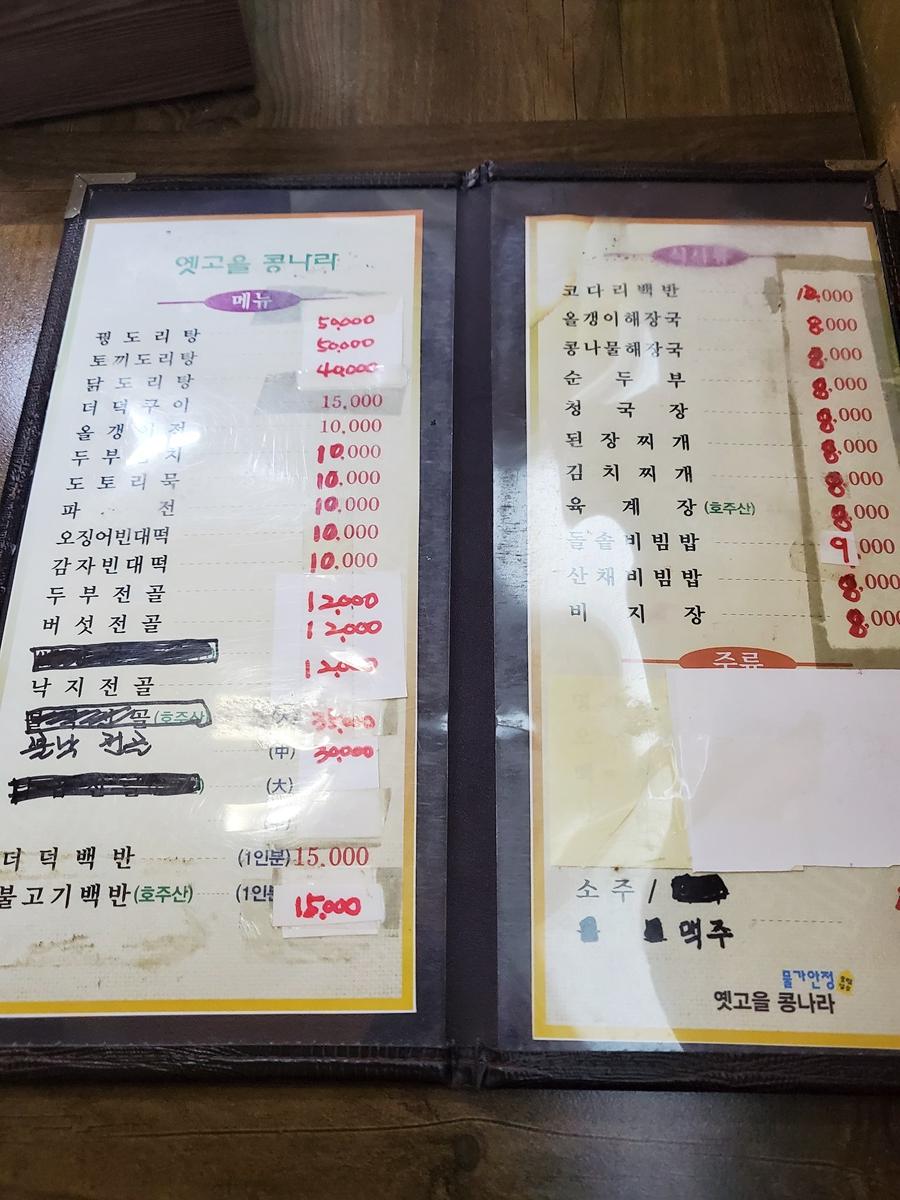 옛고을 콩나라
메뉴
꿩도리탕 50,000
토끼도리탕 50,000
닭도리탕 40,000
더덕구이 15,000
올갱이전 10,000
두부 10,000
도토리묵 10,000
파 전 10,000
오징어빈대떡 10,000
감자빈대떡 10,000
두부전골 12,000
버섯전골 12,000
낙지전골 12,000
골(호주산) (大) 35,000
전골 (中) 30,000
(大)
더덕백반 (1인분) 15,000
불고기백반(호주산) (1인분 15,000
식사류
코다리백반 12,000
올갱이해장국 8,000
콩나물해장국 8,000
순두부 8,000
청국장 8,000
된장찌개 8,000
김치찌개 8,000
육계장(호주산) 8,000
돌솥비빔밥 9,000
산채비빔밥 8,000
비지장 8,000
주류
소주/
맥주
물가안정
옛고을 콩나라